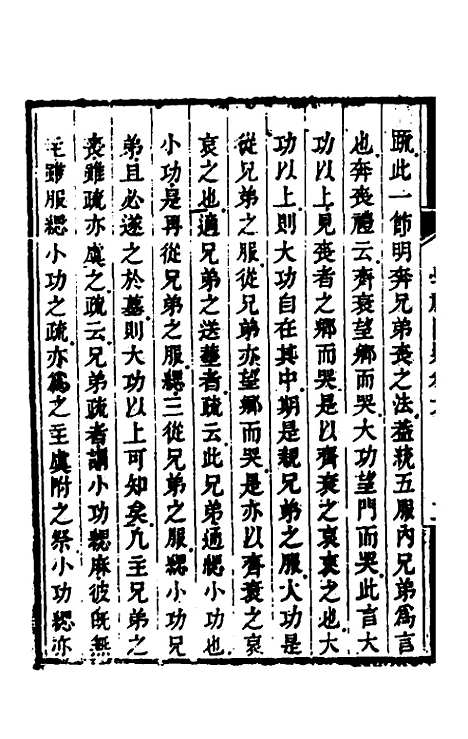 䟽此一節明奔兄弟喪之法蓋統五服內兄弟爲言
也奔喪禮云齊衰望鄉而哭大功望門而哭此言大
功以上見喪者之鄉而哭是以齊衰之哀哀之也大
功以上則大功自在其中期是親兄弟之服大功是
從兄弟之服從兄弟亦望鄉而哭是亦以齊衰之哀
哀之也適兄弟之送葬者疏云此兄弟通緦小功也
小功是再從兄弟之服緦三從兄弟之服緦小功兄
弟且必遂之於墓則大功以上可知矣凡主兄弟之
喪雖疏亦虞之疏云兄弟疏者謂小功緦麻彼旣無
主雖服緦小功之疏亦爲之主虞附之祭小功緦亦